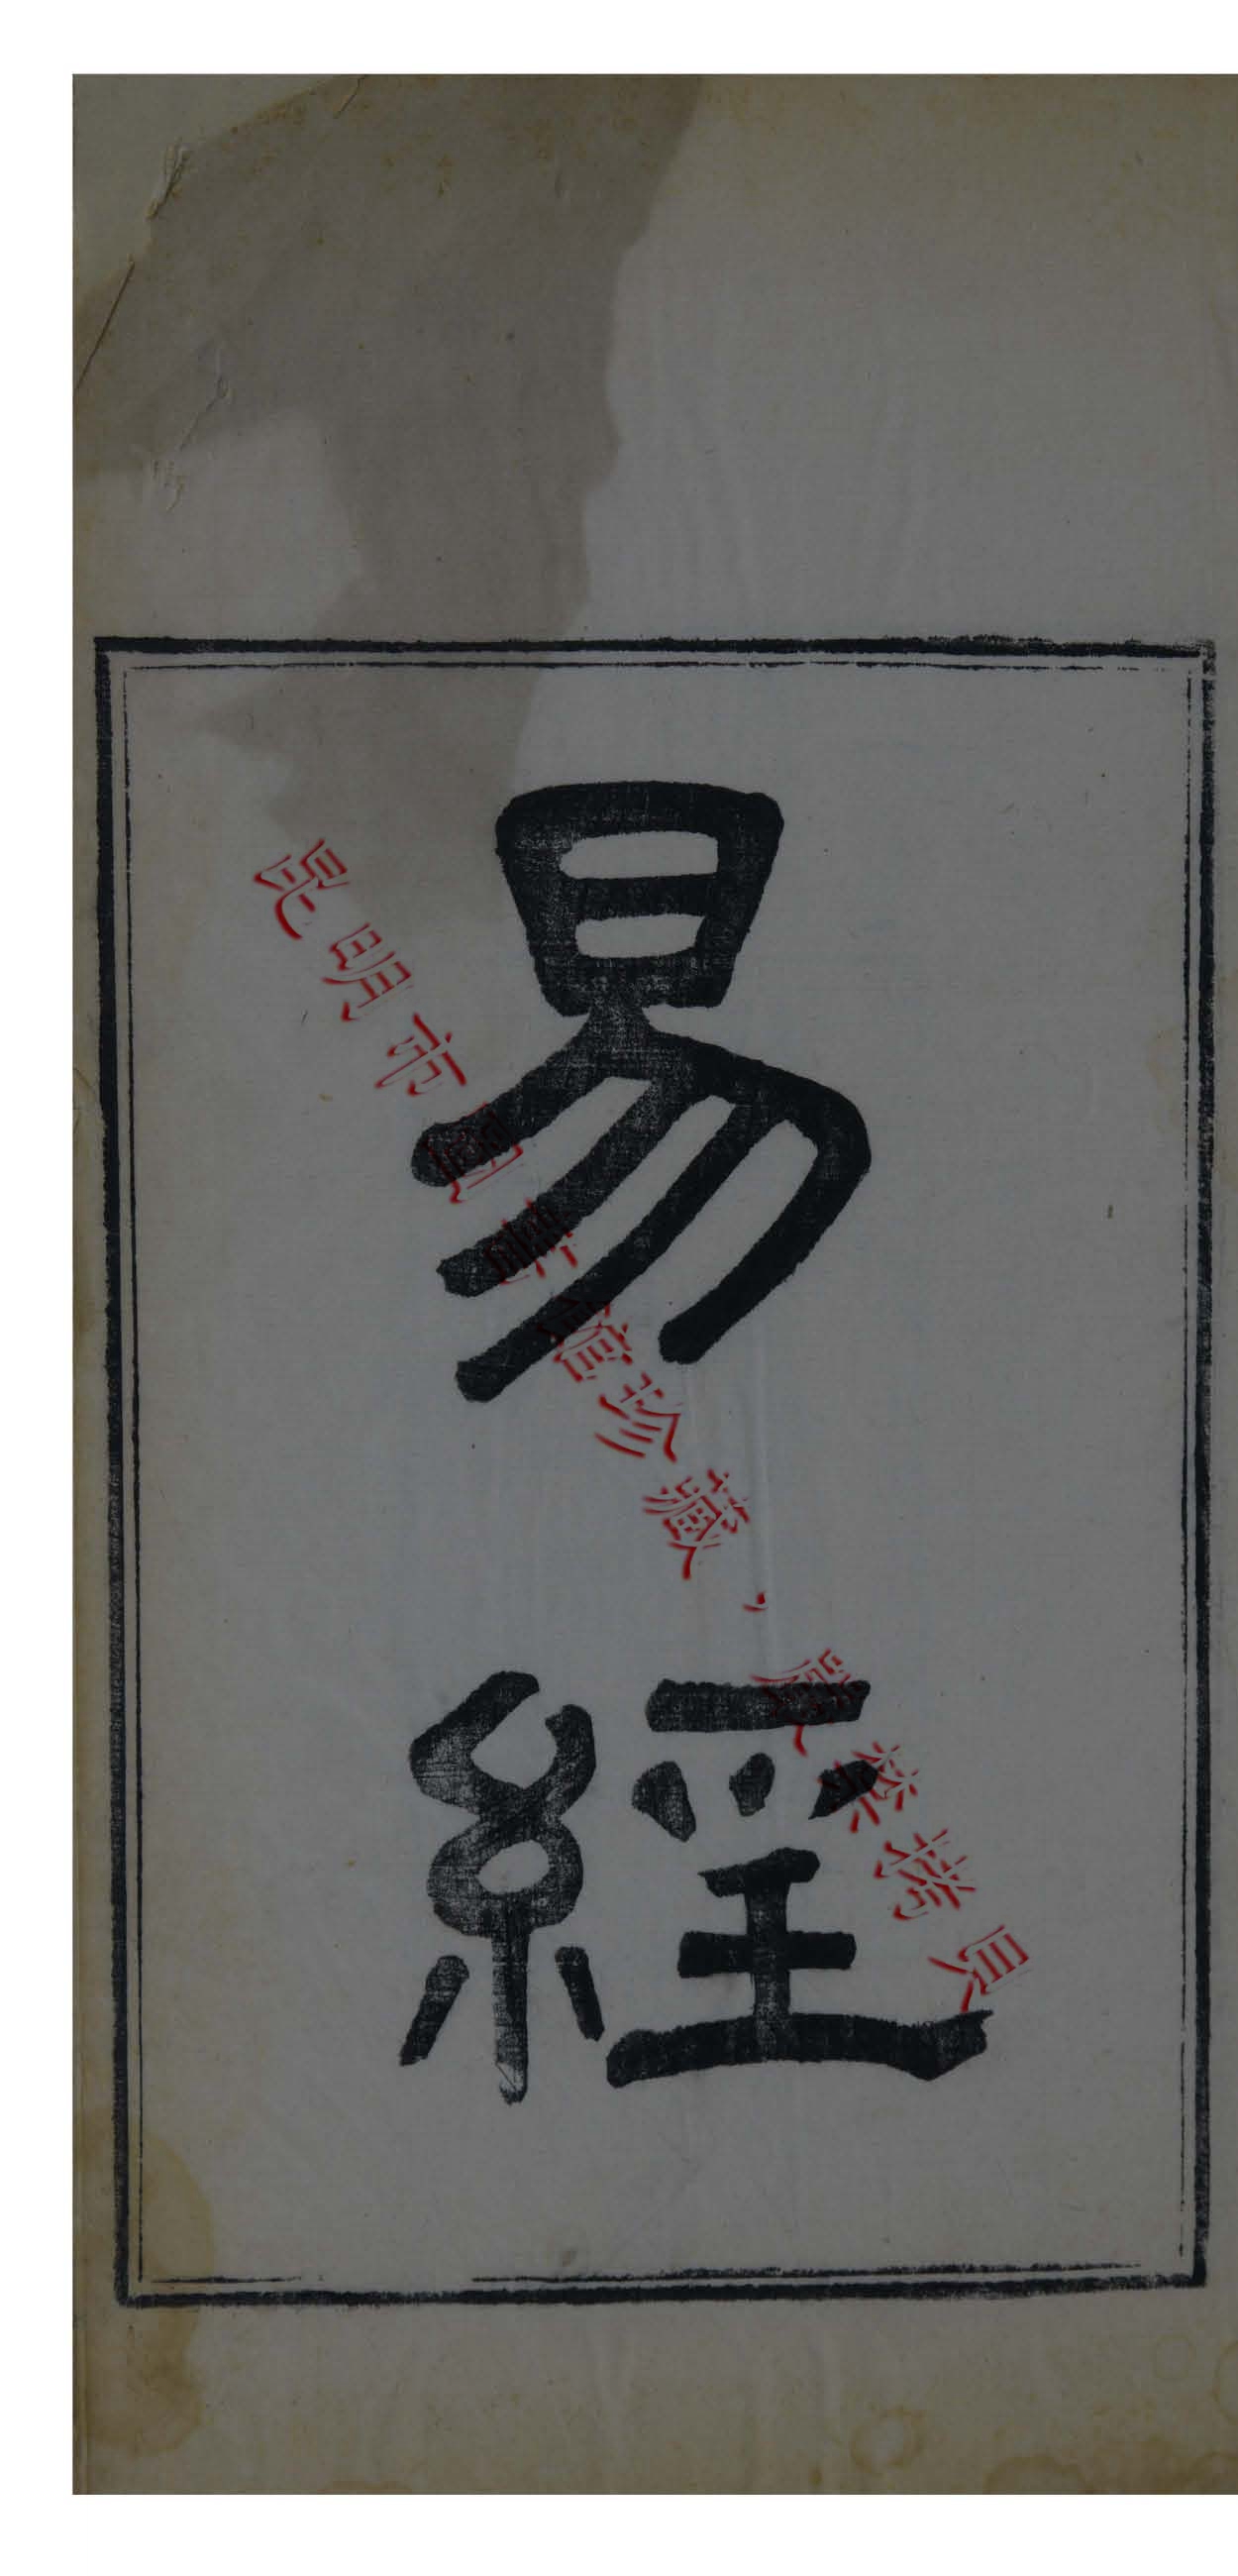 易經
昆明市圖書館珍藏，嚴禁拷貝